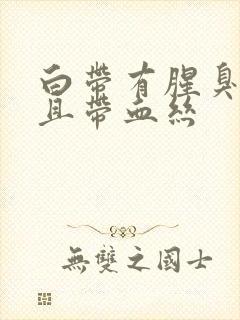 白帶有腥臭
且帶血絲
無雙之國士